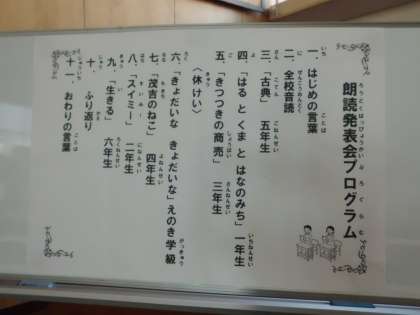 朗読発表会プログラム
一、はじめの言葉
二、全校音読
三、「古典」 五年生
四、「はる と くま と はなのみち」 一年生
五、「きつつきの商売」 三年生
〈休けい〉
六、「きょだいな きょだいな」 えのき学級
七、「茂吉のねこ」 四年生
八、「スイミー」 二年生
九、「生きる」 六年生
十、ふり返り
十一、おわりの言葉